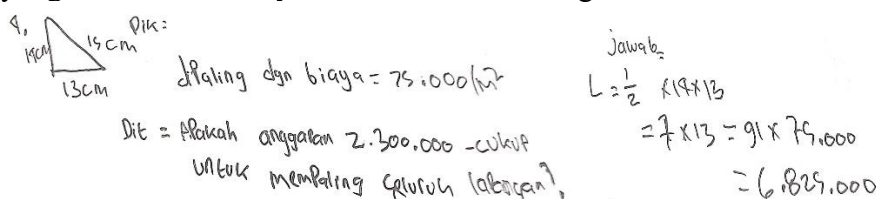 4,
Dik:
14cm
15cm
13cm
diPaling dgn biaya = 75.000/m²
Dit = APakah anggaran 2.300.000 - cukup
untuk memPaling seluruh laPangan?
Jawab:
L = 1/2 x 14 x 13
= 7 x 13 = 91 x 75.000
= 6.825.000